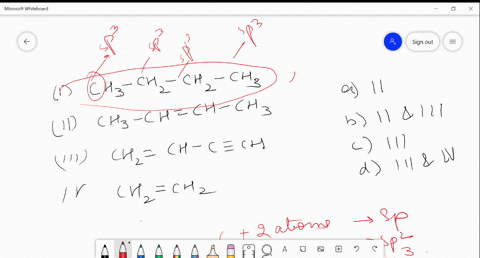 Microsoft Whiteboard
Sign out
sp³ sp³ sp³ sp³
(I) CH₃-CH₂-CH₂-CH₃ ,
(II) CH₃-CH=CH-CH₃
(III) CH₂= CH-C≡CH
IV CH₂=CH₂
a) II
b) II & III
c) III
d) III & IV
+ 2 atoms → sp
sp²
3